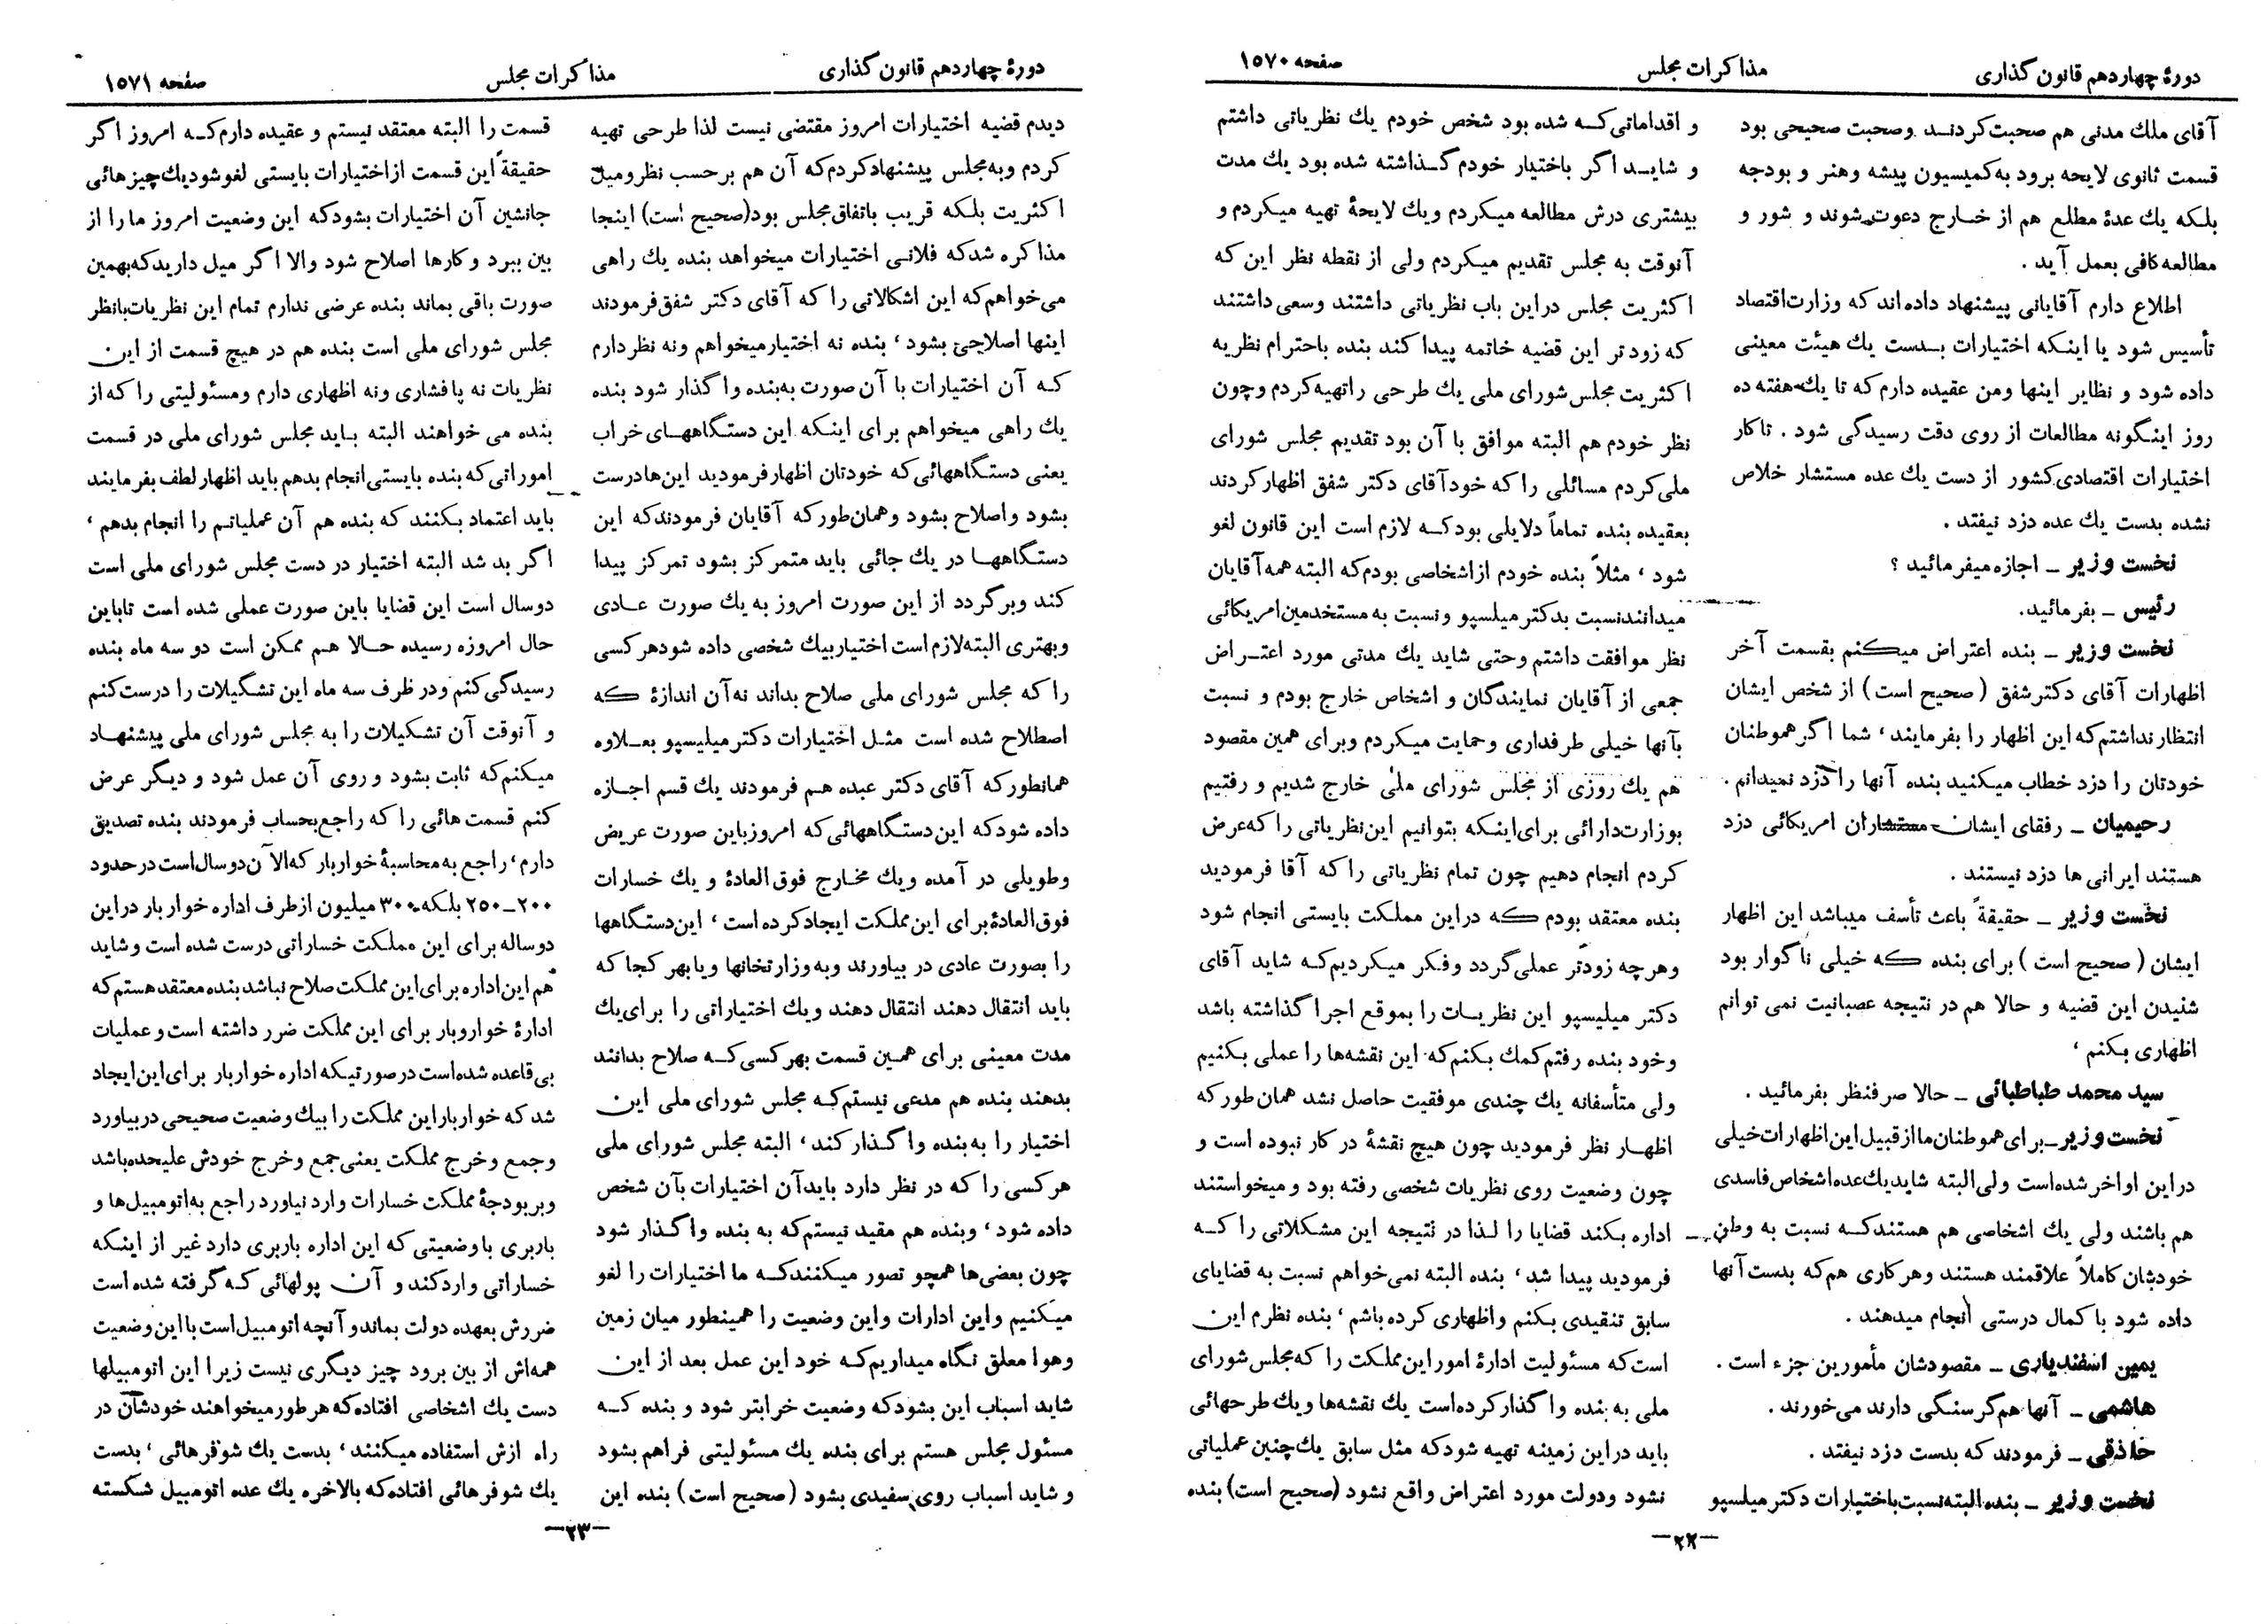 دورهٔ چهاردهم قانون گذاری
مذاکرات مجلس
صفحه ۱۵۷۰
آقای ملك مدنی هم صحبت کردنـد وصحبت صحیحی بود
قسمت ثانوی لایحه برود به کمیسیون پیشه وهنر و بودجه
بلکه یك عدهٔ مطلع هم از خـارج دعوت شوند و شور و
مطالعه کافی بعمل آید .
اطلاع دارم آقایانی پیشنهاد داده اند که وزارت اقتصاد
تأسیس شود یا اینـکه اختیارات بـدست یك هیئت معینی
داده شود و نظایر اینها ومن عقیده دارم که تا یك هفته ده
روز اینگونه مطالعات از روی دقت رسیدگی شود . تا کار
اختیارات اقتصادی کشور از دست یك عده مستشار خلاص
نشده بدست یك عده دزد نیفتد .
نخست وزیر ـ اجازه میفرمائید ؟
رئیس ـ بفرمائید.
نخست وزیر ـ بنده اعتراض میکنم بقسمت آخر
اظهارات آقای دکتر شفق ( صحیح است ) از شخص ایشان
انتظار نداشتم که این اظهار را بفرمایند ، شما اگر هموطنان
خودتان را دزد خطاب میکنید بنده آنها را دزد نمیدانم .
رحیمیان ـ رفقای ایشان مستشاران امریکائی دزد
هستند ایرانی ها دزد نیستند .
نخست وزیر ـ حقیقةً باعث تأسف میباشد این اظهار
ایشان ( صحیح است ) برای بنده که خیلی ناگوار بود
شنیدن این قضیه و حالا هم در نتیجه عصبانیت نمی توانم
اظهاری بکنم ،
سید محمد طباطبائی ـ حالا صرفنظر بفرمائید .
نخست وزیر ـ برای هموطنان ما از قبیل این اظهارات خیلی
در این اواخر شده است ولی البته شاید یك عده اشخاص فاسدی
هم باشند ولی یك اشخاصی هم هستند کـه نسبت به وطن
خودشان کاملاً علاقمند هستند وهر کاری هم که بدست آنها
داده شود با کمال درستی انجام میدهند .
یمین اسفندیاری ـ مقصودشان مأمورین جزء است .
هاشمی ـ آنها هم گرسنگی دارند می خورند .
حاذقی ـ فرمودند که بدست دزد نیفتد .
نخست وزیر ـ بنده البته نسبت باختیارات دکتر میلسپو
و اقداماتی کـه شده بود شخص خودم یك نظریاتی داشتم
و شایـد اگر باختیار خودم گـذاشته شده بود یك مدت
بیشتری درش مطالعه میکردم ویك لایحهٔ تهیه میکردم و
آنوقت به مجلس تقدیم میکردم ولی از نقطه نظر این که
اکثریت مجلس در این باب نظریاتی داشتند وسعی داشتند
که زود تر این قضیه خاتمه پیدا کند بنده باحترام نظریه
اکثریت مجلس شورای ملی یك طرحی را تهیه کردم وچون
نظر خودم هم البته موافق با آن بود تقدیم مجلس شورای
ملی کردم مسائلی را که خود آقای دکتر شفق اظهار کردند
بعقیده بنده تماماً دلایلی بود کـه لازم است این قانون لغو
شود ، مثلاً بنده خودم از اشخاصی بودم که البته همه آقایان
میدانند نسبت بدکتر میلسپو و نسبت به مستخدمین امریکائی
نظر موافقت داشتم وحتی شاید یك مدتی مورد اعتـراض
جمعی از آقایان نمایندگان و اشخاص خارج بودم و نسبت
بآنها خیلی طرفداری وحمایت میکردم وبرای همین مقصود
هم یك روزی از مجلس شورای ملی خارج شدیم و رفتیم
بوزارت دارائی برای اینکه بتوانیم این نظریاتی را که عرض
کردم انجام دهیم چون تمام نظریاتی را که آقا فرمودید
بنده معتقد بودم که در این مملکت بایستی انجام شود
وهرچه زودتر عملی گردد وفکر میکردیم کـه شاید آقای
دکتر میلیسپو این نظریـات را بموقع اجرا گذاشته باشد
وخود بنده رفتم کمك بکنم که این نقشه‌ها را عملی بکنیم
ولی متأسفانه یك چندی موفقیت حاصل نشد همان طور که
اظهـار نظر فرمودید چون هیچ نقشهٔ در کار نبوده است و
چون وضعیت روی نظریات شخصی رفته بود و میخواستند
اداره بکند قضایا را لـذا در نتیجه این مشکلاتی را کـه
فرمودید پیدا شد ، بنده البته نمی خواهم نسبت به قضایای
سابق تنقیدی بکنم واظهاری کرده باشم ، بنده نظرم این
است که مسئولیت ادارهٔ امور این مملکت را که مجلس شورای
ملی به بنده واگذار کرده است یك نقشه‌ها ویك طرحهائی
باید در این زمینه تهیه شود که مثل سابق یك چنین عملیاتی
نشود ودولت مورد اعتراض واقع نشود (صحیح است) بنده
ـ۲۲ـ
دورهٔ چهاردهم قانون گذاری
مذاکرات مجلس
صفحه ۱۵۷۱
دیدم قضیه اختیارات امروز مقتضی نیست لذا طرحی تهیه
کردم وبه مجلس پیشنهاد کردم که آن هم بر حسب نظر ومیل
اکثریت بلکه قریب باتفاق مجلس بود (صحیح است) اینجا
مذاکره شد که فلانـی اختیارات میخواهد بنده یك راهی
می خواهم که این اشکالاتی را که آقای دکتر شفق فرمودند
اینها اصلاحی بشود ، بنده نه اختیار میخواهم ونه نظر دارم
کـه آن اختیارات با آن صورت به بنده واگذار شود بنده
یك راهی میخواهم برای اینکه این دستگاههـای خراب
یعنی دستگاههائی که خودتان اظهار فرمودید این ها درست
بشود واصلاح بشود وهمان طور که آقایان فرمودند که این
دستگاههـا در یك جائی باید متمرکز بشود تمرکز پیدا
کند وبرگردد از این صورت امروز به یك صورت عـادی
وبهتری البته لازم است اختیار بیك شخصی داده شود هر کسی
را که مجلس شورای ملی صلاح بداند نه آن اندازهٔ که
اصطلاح شده است مثـل اختیارات دکتر میلیسپو بعـلاوه
همانطور که آقای دکتر عبده هـم فرمودند یك قسم اجـازه
داده شود که این دستگاههائی که امروز باین صورت عریض
وطویلی در آمده ویك مخـارج فوق العادهٔ و یك خسارات
فوق العادهٔ برای این مملکت ایجاد کرده است ، این دستگاهها
را بصورت عادی در بیاورند وبه وزارتخانها ویا بهر کجا که
باید انتقال دهند انتقال دهند ویك اختیاراتی را برای یك
مدت معینی برای همـین قسمت بهر کسی کـه صلاح بدانند
بدهند بنده هم مدعی نیستم کـه مجلس شورای ملی این
اختیار را به بنده واگـذار کند ، البته مجلس شورای ملی
هر کسی را که در نظر دارد باید آن اختیارات بآن شخص
داده شود ، وبنده هم مقید نیستم که به بنده واگـذار شود
چون بعضی ها همچو تصور میکنند کـه ما اختیارات را لغو
میکنیم واین ادارات واین وضعیت را همینطور میان زمین
وهوا معلق نگاه میداریم کـه خود این عمل بعد از این
شاید اسباب این بشود که وضعیت خرابتر شود و بنده کـه
مسئول مجلس هستم برای بنده یك مسئولیتی فراهم بشود
و شاید اسباب روی سفیدی بشود (صحیح است) بنده این
قسمت را البته معتقد نیستم و عقیده دارم کـه امروز اگر
حقیقةً این قسمت از اختیارات بایستی لغو شود یك چیزهائی
جانشین آن اختیارات بشود که این وضعیت امروز ما را از
بین ببرد و کارها اصلاح شود والا اگر میل دارید که بهمین
صورت باقی بماند بنده عرضی ندارم تمام این نظریات با نظر
مجلس شورای ملی است بنده هم در هیچ قسمت از این
نظریات نه پافشاری ونه اظهاری دارم ومسئولیتی را که از
بنده می خواهند البته بـاید مجلس شورای ملی در قسمت
اموراتی که بنده بایستی انجام بدهم باید اظهار لطف بفرمایند
باید اعتماد بکنند که بنده هم آن عملیاتم را انجام بدهم ،
اگر بد شد البته اختیار در دست مجلس شورای ملی است
دو سال است این قضایا باین صورت عملی شده است تا باین
حال امروزه رسیده حـالا هـم ممکن است دو سه ماه بنده
رسیدگی کنم و در ظرف سه ماه این تشکیلات را درست کنم
و آنوقت آن تشکیلات را به مجلس شورای ملی پیشنهـاد
میکنم که ثابت بشود و روی آن عمل شود و دیگر عرض
کنم قسمت هائی را که راجع بحساب فرمودند بنده تصدیق
دارم ، راجع به محاسبهٔ خواربار که الآن دو سال است در حدود
۲۰۰ ـ ۲۵۰ بلکه ۳۰۰ میلیون از طرف اداره خواربار در این
دو ساله برای این مملکت خساراتی درست شده است و شاید
هم این اداره برای این مملکت صلاح نباشد بنده معتقد هستم که
ادارهٔ خواروبار برای این مملکت ضرر داشته است و عملیات
بی قاعده شده است در صورتیکه اداره خواربار برای این ایجاد
شد که خواربار این مملکت را بیك وضعیت صحیحی در بیاورد
و جمع و خرج مملکت یعنی جمع وخرج خودش علیحده باشد
وبر بودجهٔ مملکت خسارات وارد نیاورد راجع به اتومبیل ها و
باربری با وضعیتی که این اداره باربری دارد غیر از اینکه
خساراتی وارد کند و آن پولهائی کـه گرفته شده است
ضررش بعهده دولت بماند و آنچه اتومبیل است با این وضعیت
همه‌اش از بین برود چیز دیگری نیست زیرا این اتومبیلها
دست یك اشخاصی افتاده که هر طور میخواهند خودشان در
راه ازش استفاده میکنند ، بدست یك شوفرهائی ، بدست
یك شوفرهائی افتاده که بالاخره یك عده اتومبیل شکسته
ـ۲۳ـ